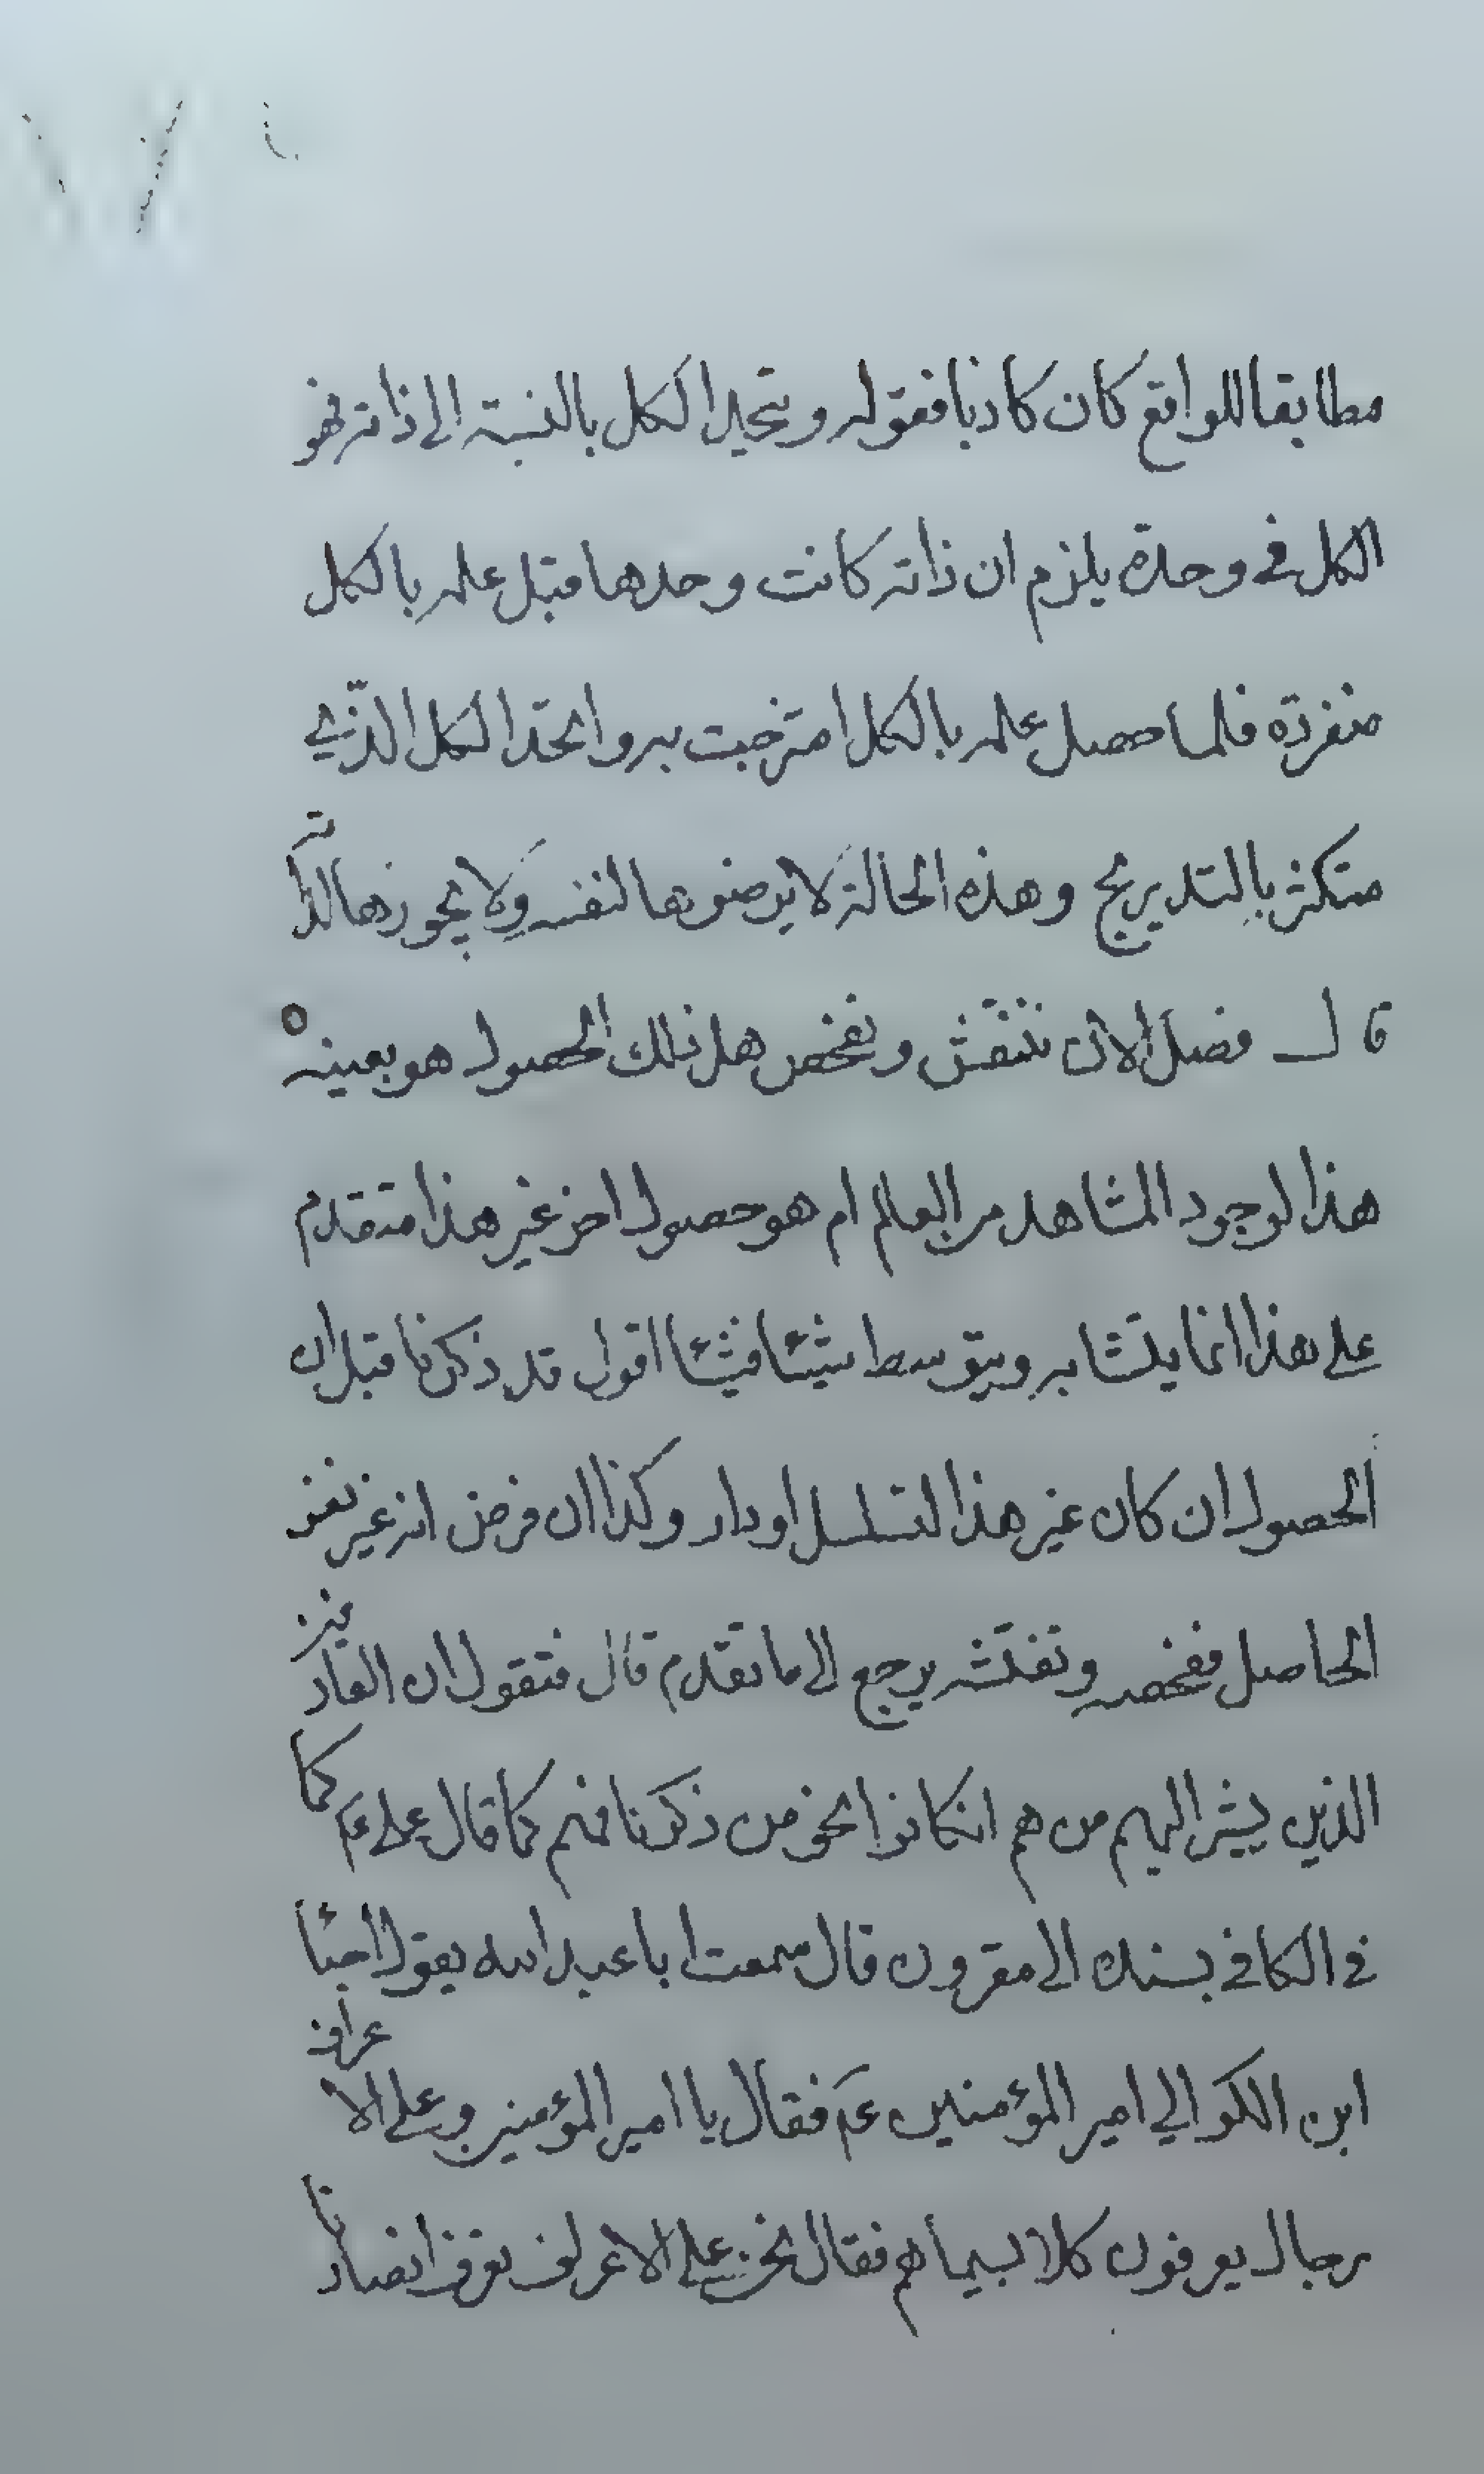 مطابقا للواقع كان كاذبا فقوله ويتحد الكل بالنسبة الى ذاته فهو
الكل في وحدة يلزم ان ذاته كانت وحدها قبل علمه بالكل
منفردة فلما حصل علمه بالكل امتزجت به واتحد الكل الذي
متكثر بالتدريج وهذه الحالة لا يرضونها لنفسه ولا يجوزها لذاته
قال فصل الان ننقش ونفحص هل ذلك الحصول هو بعينه
هذا لوجود المشاهد من العالم ام هو حصول اخر غير هذا متقدم
على هذا انما يتشابه ويتوسط شيئا فشيئا اقول قد ذكرنا قبل ان
الحصول ان كان غير هذا لتسلسل او دار وكذا ان فرض انه غير نفس
الحاصل ففحصه وتفتشه يرجع الى ما تقدم قال فنقول ان العارفين
الذين يشر اليهم من هم انكانوا نحو من ذكرنا فهم كما قال علي ع كما
في الكافي بسنده الى مقرون قال سمعت ابا عبد الله يقول اجئا
ابن الكوا الي امير المؤمنين ع فقال يا امير المؤمنين وعلى الاعراف
رجال يعرفون كلا بسيماهم فقال نحن على الاعراف نعرف انصارنا